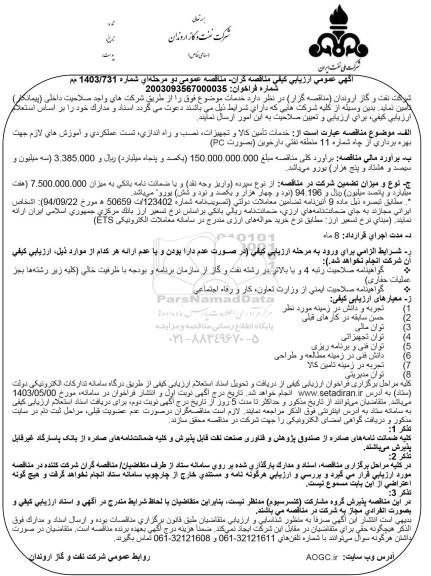 بسمه تعالی
شرکت نفت و گاز اروندان
(سهامی خاص)
شماره:
تاریخ:
پیوست:
شرکت ملی نفت ایران
آگهي عمومي ارزيابي كيفي مناقصه گران- مناقصه عمومی دو مرحله‌ای شماره 1403/731 م‌م
شماره فراخوان: 2003093567000035
شركت نفت و گاز اروندان (مناقصه گزار) در نظر دارد خدمات موضوع فوق را از طريق شركت های واجد صلاحيت داخلی (پيمانكار)
تأمين نمايد. بدين وسيله از كليه شركت هايی كه دارای شرايط ذيل می باشند دعوت می گردد اسناد و مدارک خود را بر اساس استعلام
ارزیابی کیفی، برای ارزیابی و تعیین صلاحیت به این امور ارسال نمایند.
الف- موضوع مناقصه عبارت است از: خدمات تأمین کالا و تجهیزات، نصب و راه اندازی، تست عملکردی و آموزش های لازم جهت
بهره برداری از چاه شماره 11 منطقه نفتی دارخوین (بصورت PC)
ب- برآورد مالي مناقصه: برآورد کلی مناقصه مبلغ 150.000.000.000 (یکصد و پنجاه میلیارد) ریال و 3.385.000 (سه میلیون و
سیصد و هشتاد و پنج هزار) یورو می‌باشد.
ج- نوع و میزان تضمین شرکت در مناقصه: از نوع سپرده (واریز وجه نقد) و یا ضمانت نامه بانکی به میزان 7.500.000.000 (هفت
میلیارد و پانصد میلیون) ریال و 94.196 (نود و چهار هزار و یکصد و نود و شش) یورو* می‌باشد.
*. مطابق تبصره ذیل ماده 9 آئین‌نامه تضامین معاملات دولتی (تصویب‌نامه شماره 123402/ت 50659 ه مورخ 94/09/22): اشخاص
ایرانی مجازند به جای ضمانت‌نامه‌های ارزی، ضمانت‌نامه ریالی بانکی براساس نرخ تسعیر ارز بانک مرکزی جمهوری اسلامی ایران ارائه
نمایند. (مبنای نرخ تسعیر ارز: مطابق نرخ خرید حواله‌های ارزی مندرج در سامانه معاملات الکترونیکی ETS)
د- مدت اجرای قرارداد: 8 ماه
ر- شـرايط الزامي براي ورود به مرحله ارزيابي كيفي (در صـورت عدم دارا بودن و يا عدم ارائه هر كدام از موارد ذيل، ارزيابي كيفي
آن شرکت انجام نخواهد شد):
❖ گواهينامه صلاحيت رتبه 4 و یا بالاتر در رشته نفت و گاز از سازمان برنامه و بودجه با ظرفیت خالی (کلیه زیر رشته‌ها بجز
عملیات حفاری)
❖ گواهينامه صلاحيت ايمنی از وزارت تعاون، كار و رفاه اجتماعی
ز- معیارهای ارزیابی کیفی:
1) تجربه و دانش در زمينه مورد نظر
2) حسن سابقه در كارهای قبلی
3) توان مالی
4) توان تجهیزاتی
5) توان فنی و برنامه ریزی
6) دانش فنی در زمینه مطالعه و طراحی
7) تجربه در زمینه تامین کالا
8) توان مدیریتی
کلیه مراحل برگزاری فراخوان ارزیابی کیفی از دریافت و تحویل اسناد استعلام ارزیابی کیفی از طریق درگاه سامانه تدارکات الکترونیکی دولت
(ستاد) به آدرس www.setadiran.ir انجام خواهد شد. تاریخ درج آگهی نوبت اول و انتشار فراخوان در سامانه، مورخ 1403/05/00
می‌باشد. متقاضیان می‌توانند از تاریخ مذکور و حداکثر تا مدت 5 روز از تاریخ درج آگهی نوبت دوم، برای دریافت اسناد استعلام ارزیابی کیفی
به سامانه ستاد به آدرس اینترنتی فوق الذکر مراجعه نمایند. لازم است مناقصه‌گران درصورت عدم عضویت قبلی، مراحل ثبت نام در سایت
مذکور و دریافت گواهی امضای الکترونیکی را جهت شرکت در مناقصه محقق سازند.
تذکر 1:
کلیه ضمانت نامه‌های صادره از صندوق پژوهش و فناوری صنعت نفت قابل پذیرش و کلیه ضمانت‌نامه‌های صادره از بانک پاسارگاد غیرقابل
پذیرش می‌باشند.
تذکر 2:
در کلیه مراحل برگزاری مناقصه، اسناد و مدارک بارگذاری شده بر روی سامانه ستاد از طرف متقاضیان/ مناقصه گران شرکت کننده در مناقصه
مورد ارزیابی قرار می گیرد و بررسی و ارزیابی هرگونه نامه و مستندی خارج از چارچوب سامانه ستاد انجام نخواهد گرفت و هیچ گونه
اعتراضی از این بابت مسموع نیست.
تذکر 3:
در این مناقصه پذیرش گروه مشارکت (کنسرسیوم) مدنظر نیست، بنابراین متقاضیان با لحاظ شرایط مندرج در آگهی و اسناد ارزیابی کیفی و
بصورت انفرادی مجاز به شرکت در مناقصه می باشند.
بدیهی است انتشار این آگهی صرفاً به منظور شناسایی و ارزیابی متقاضیان طبق قانون برگزاری مناقصات بوده و ارسال اسناد و مدارک فوق
الذکر هیچگونه حقی برای متقاضیان در مقابل این شرکت ایجاد نمی‌کند. ضمناً هزینه درج آگهی بعهده برنده مناقصه است. متقاضیان در صورت
داشتن هرگونه سوال می‌توانند با شماره تلفن‌های 32121611-061 و 32121608-061 تماس بگیرند.
آدرس وب سایت: AOGC.ir
روابط عمومی شرکت نفت و گاز اروندان
ParsNamadData
پایگاه اطلاع رسانی مناقصه و مزایده
۰۲۱-۸۸۳۴۹۶۷۰-۵